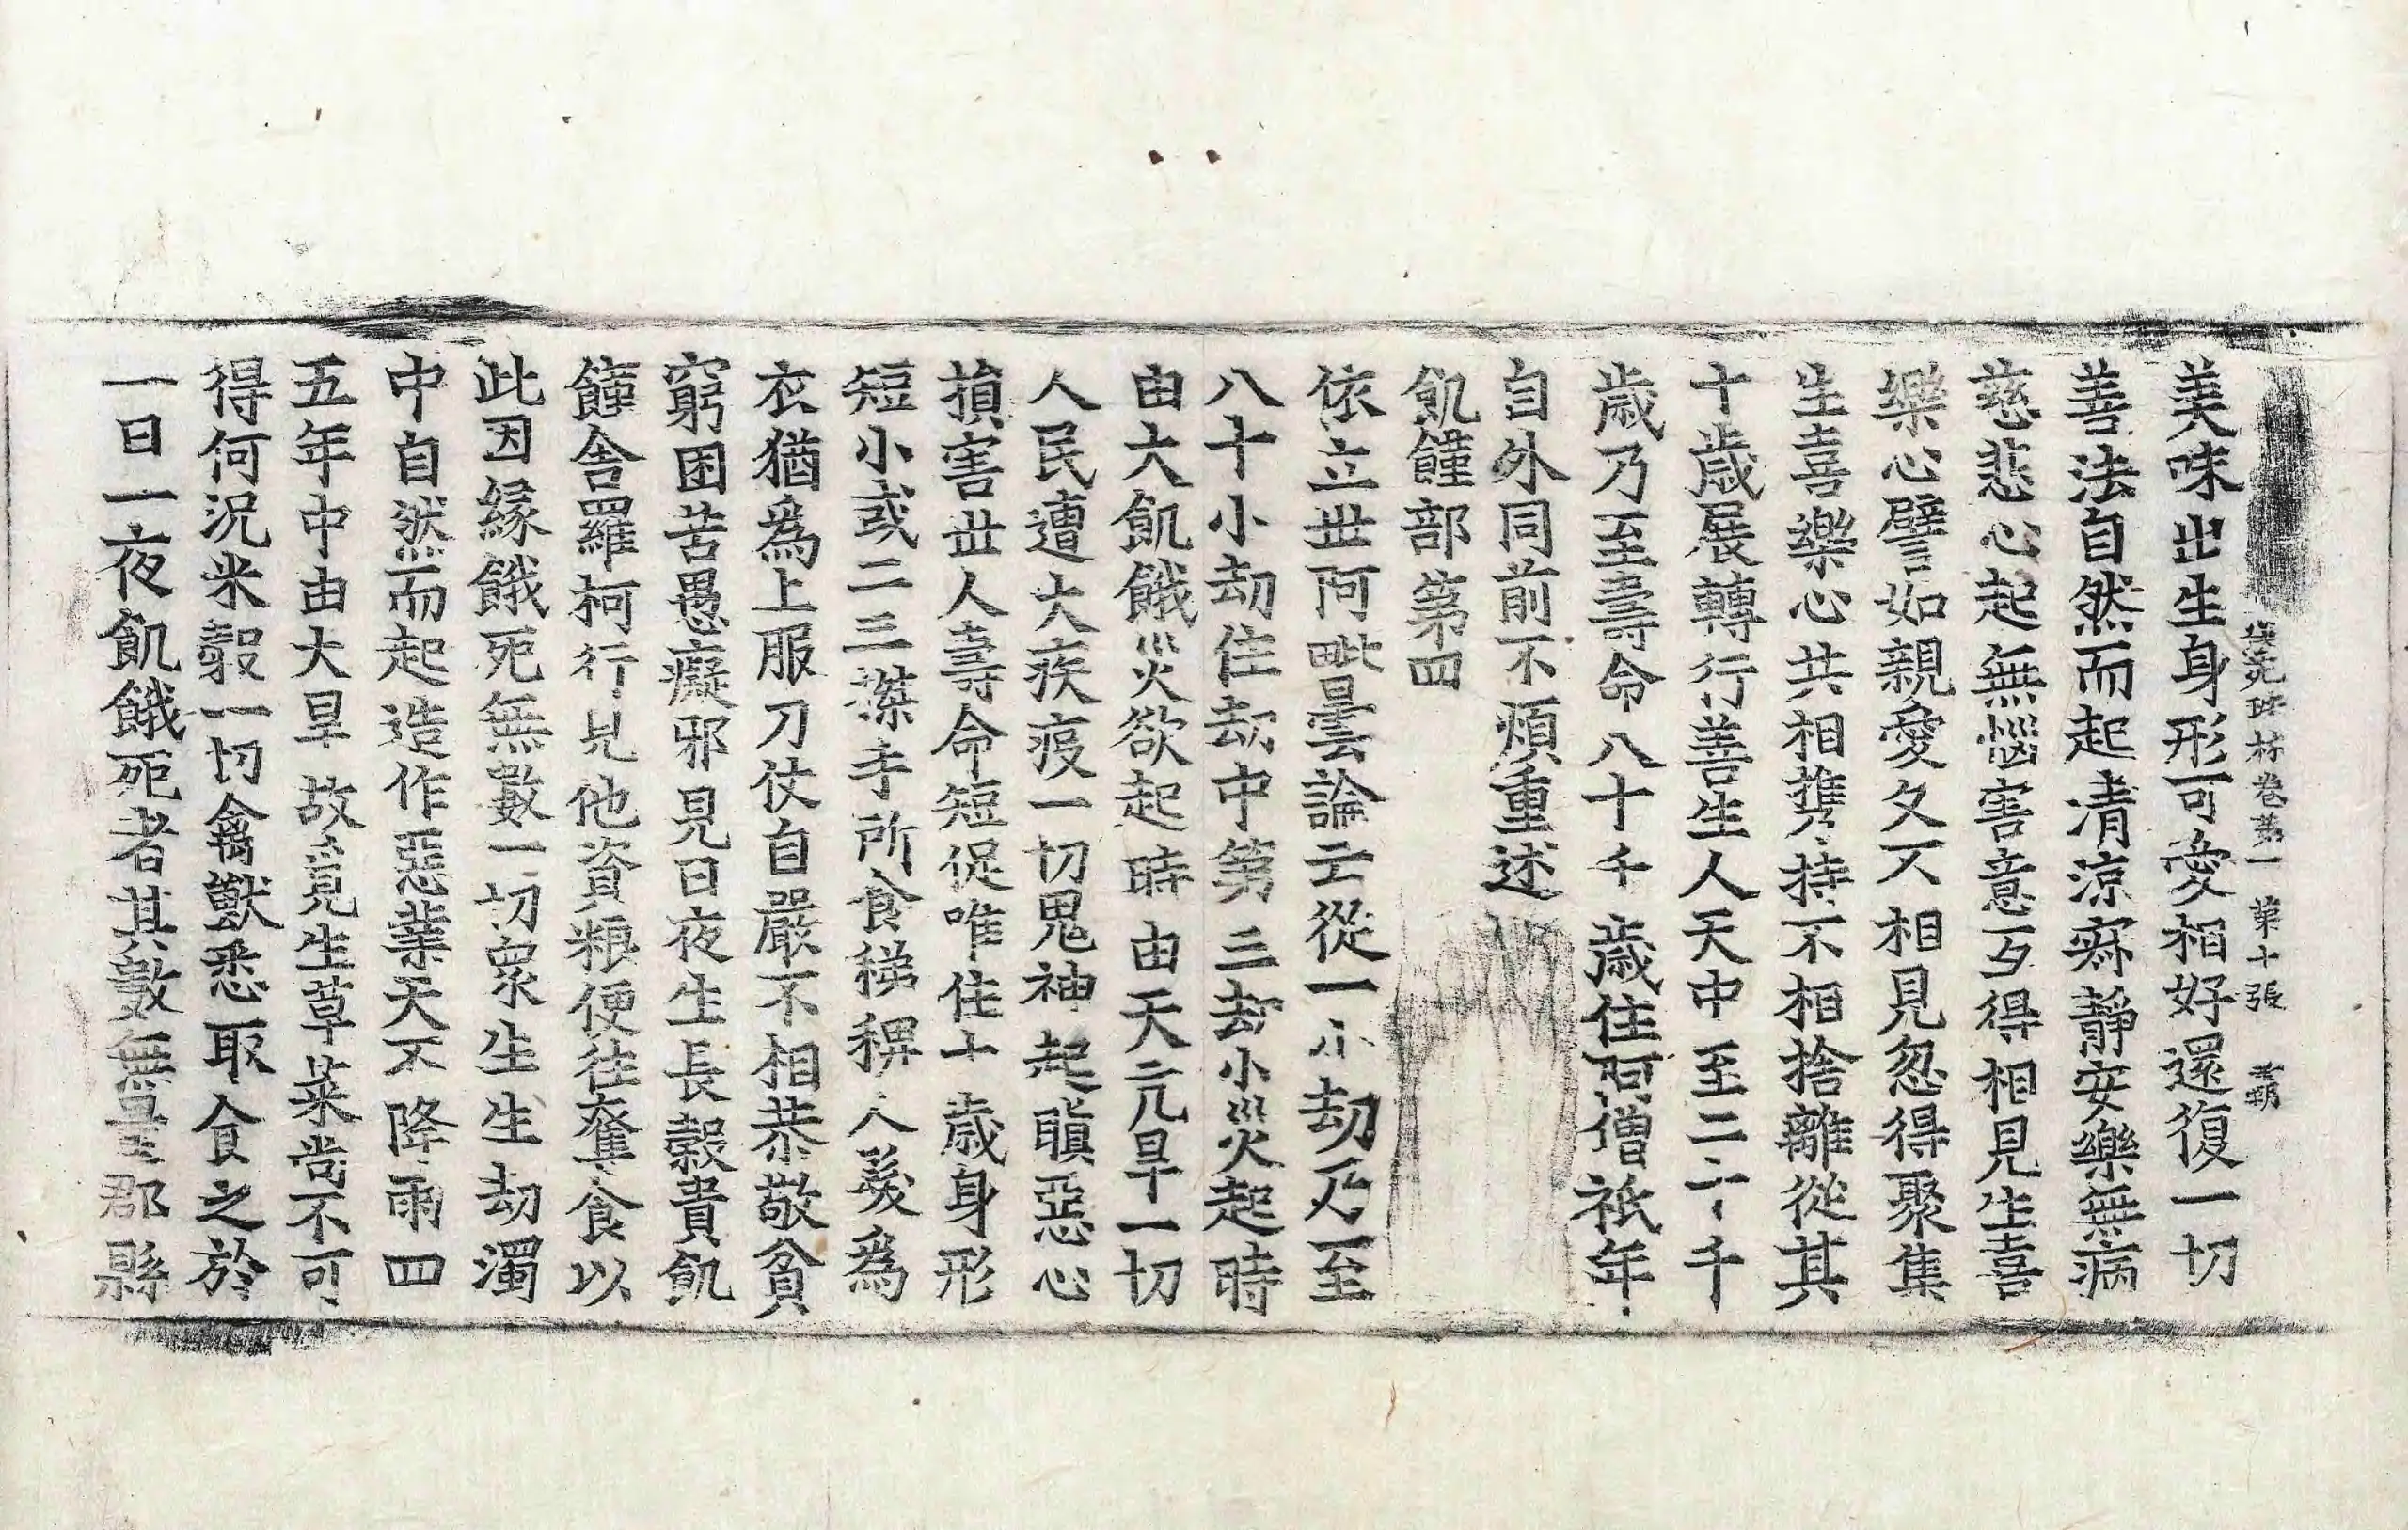 法苑珠林卷第一 第十張 覇
美味出生身形可愛相好還復一切
善法自然而起清涼寂靜安樂無病
慈悲心起無惱害意歹得相見生喜
樂心譬如親愛久不相見忽得聚集
生喜樂心共相携持不相捨離從其
十歲展轉行善生人天中至二二千
歲乃至壽命八十千歲住阿僧祇年
自外同前不煩重述
飢饉部第四
依立世阿毗曇論云從一小劫乃至
八十小劫住劫中第三劫小災起時
由大飢餓災欲起時由天亢旱一切
人民遭大疾疫一切鬼神起瞋惡心
損害世人壽命短促唯住十歲身形
短小或二三搩手所食稊稗人髮爲
衣猶爲上服刀仗自嚴不相恭敬貧
窮困苦愚癡邪見日夜生長穀貴飢
饉舍羅柯行見他資粮便往奪食以
此因緣餓死無數一切衆生生劫濁
中自然而起造作惡業天不降雨四
五年中由大旱故覓生草菜尚不可
得何況米穀一切禽獸悉取食之於
一日一夜飢餓死者其數無量郡縣